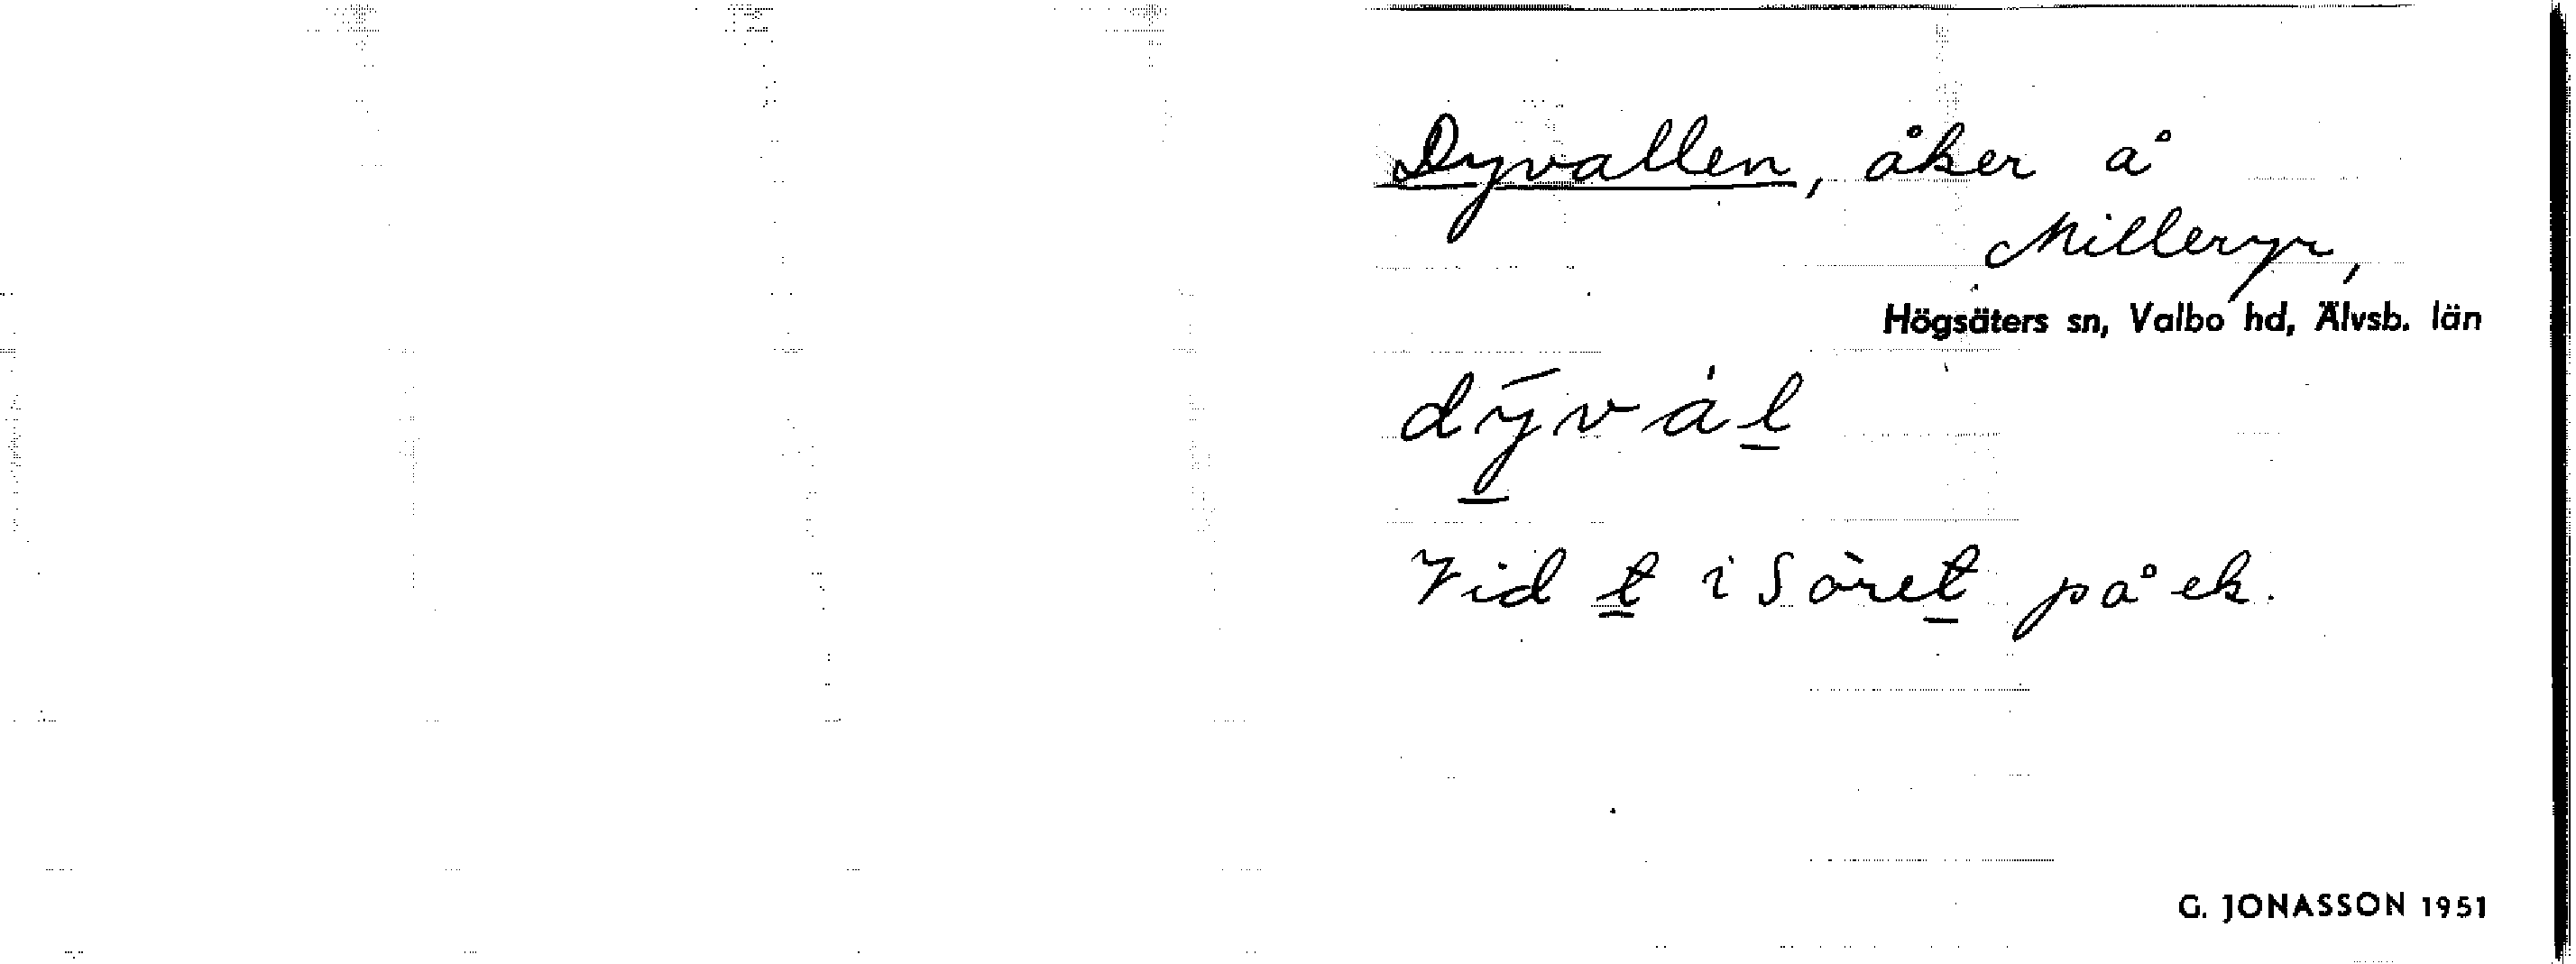 Dyvallen, åker å
Milleryr,
Högsäters sn, Valbo hd, Älvsb. län
dȳ̱vàḻ
Vid t̳ i Söreṯ på ek.
G. JONASSON 1951